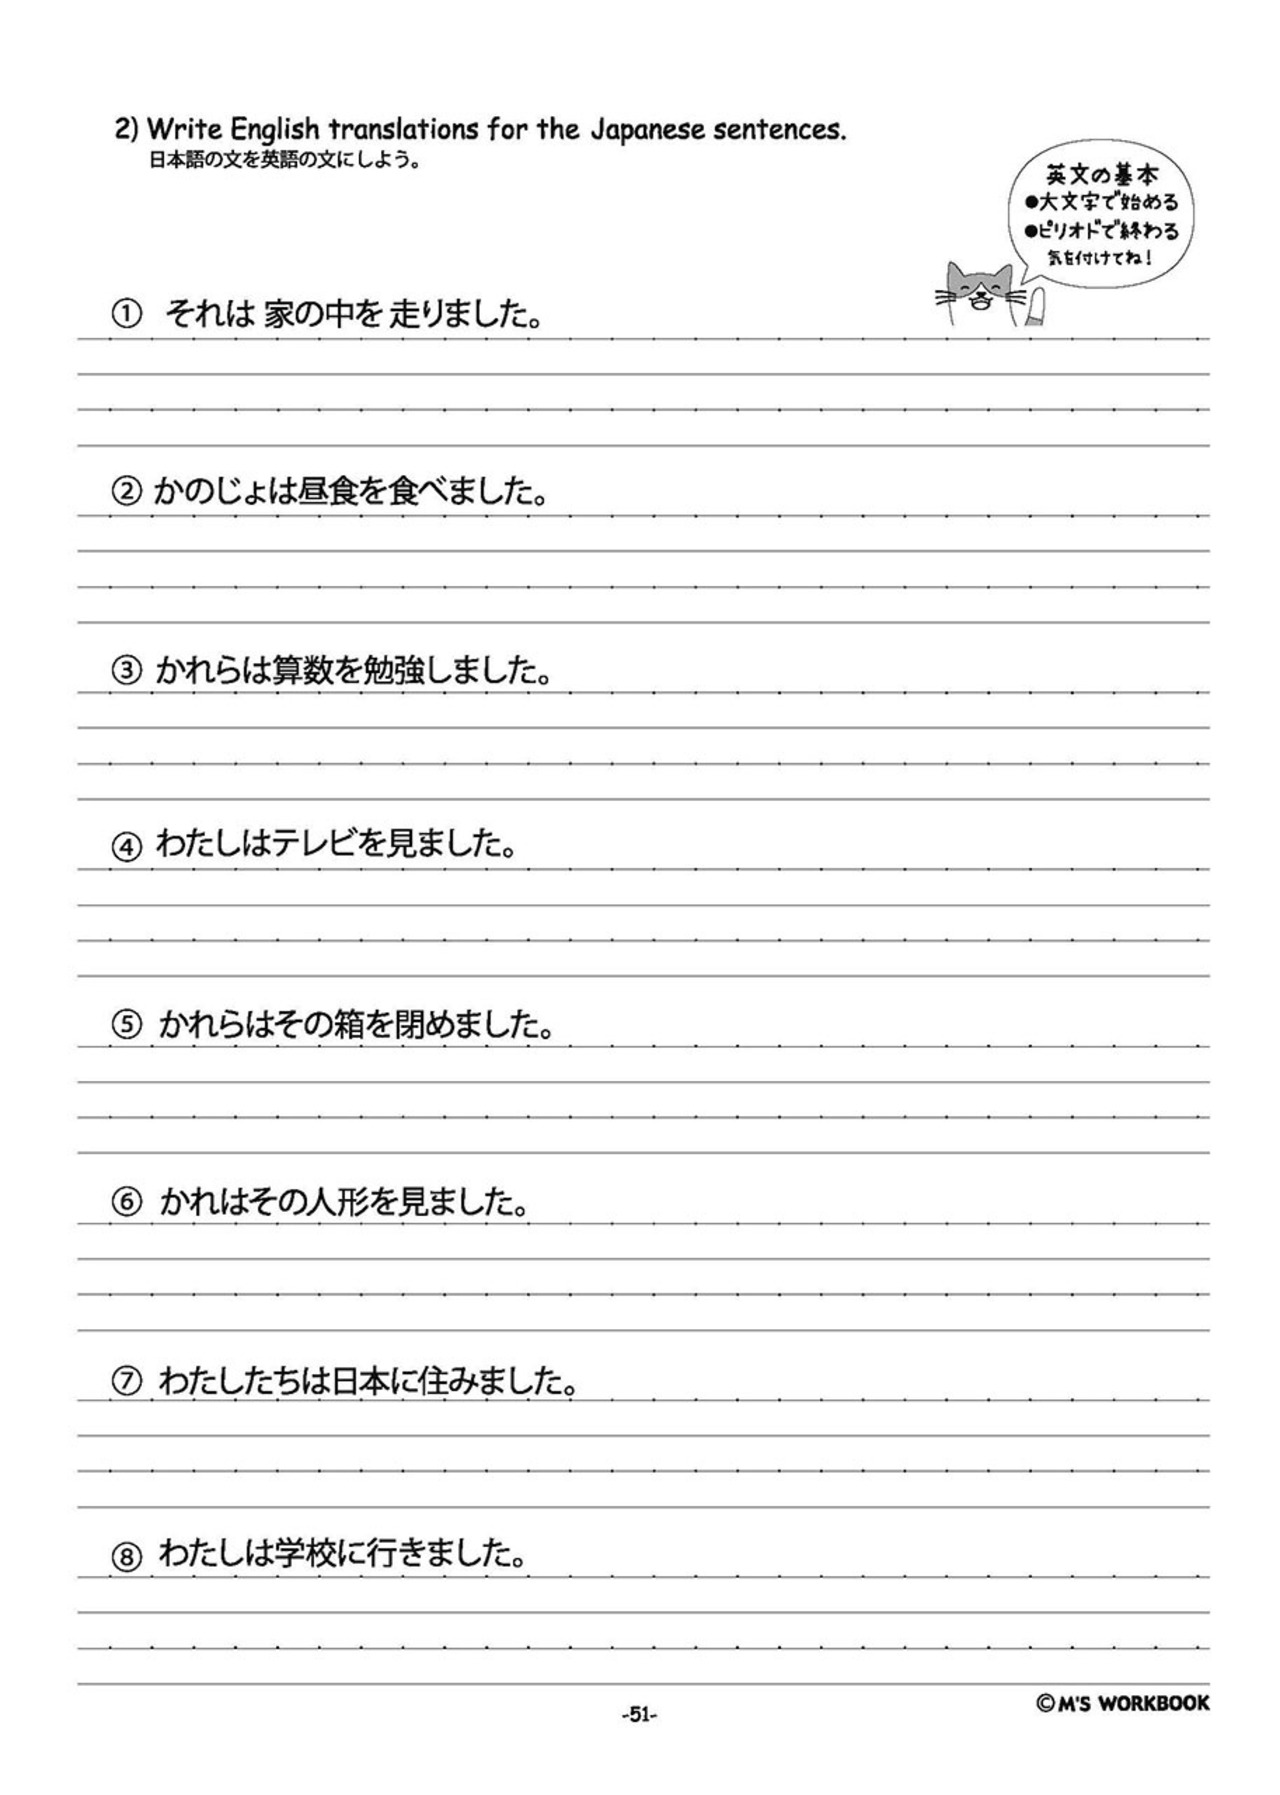 2) Write English translations for the Japanese sentences.
日本語の文を英語の文にしよう。
英文の基本
●大文字で始める
●ピリオドで終わる
気を付けてね!
① それは 家の中を 走りました。
② かのじょは昼食を食べました。
③ かれらは算数を勉強しました。
④ わたしはテレビを見ました。
⑤ かれらはその箱を閉めました。
⑥ かれはその人形を見ました。
⑦ わたしたちは日本に住みました。
⑧ わたしは学校に行きました。
©M'S WORKBOOK
-51-